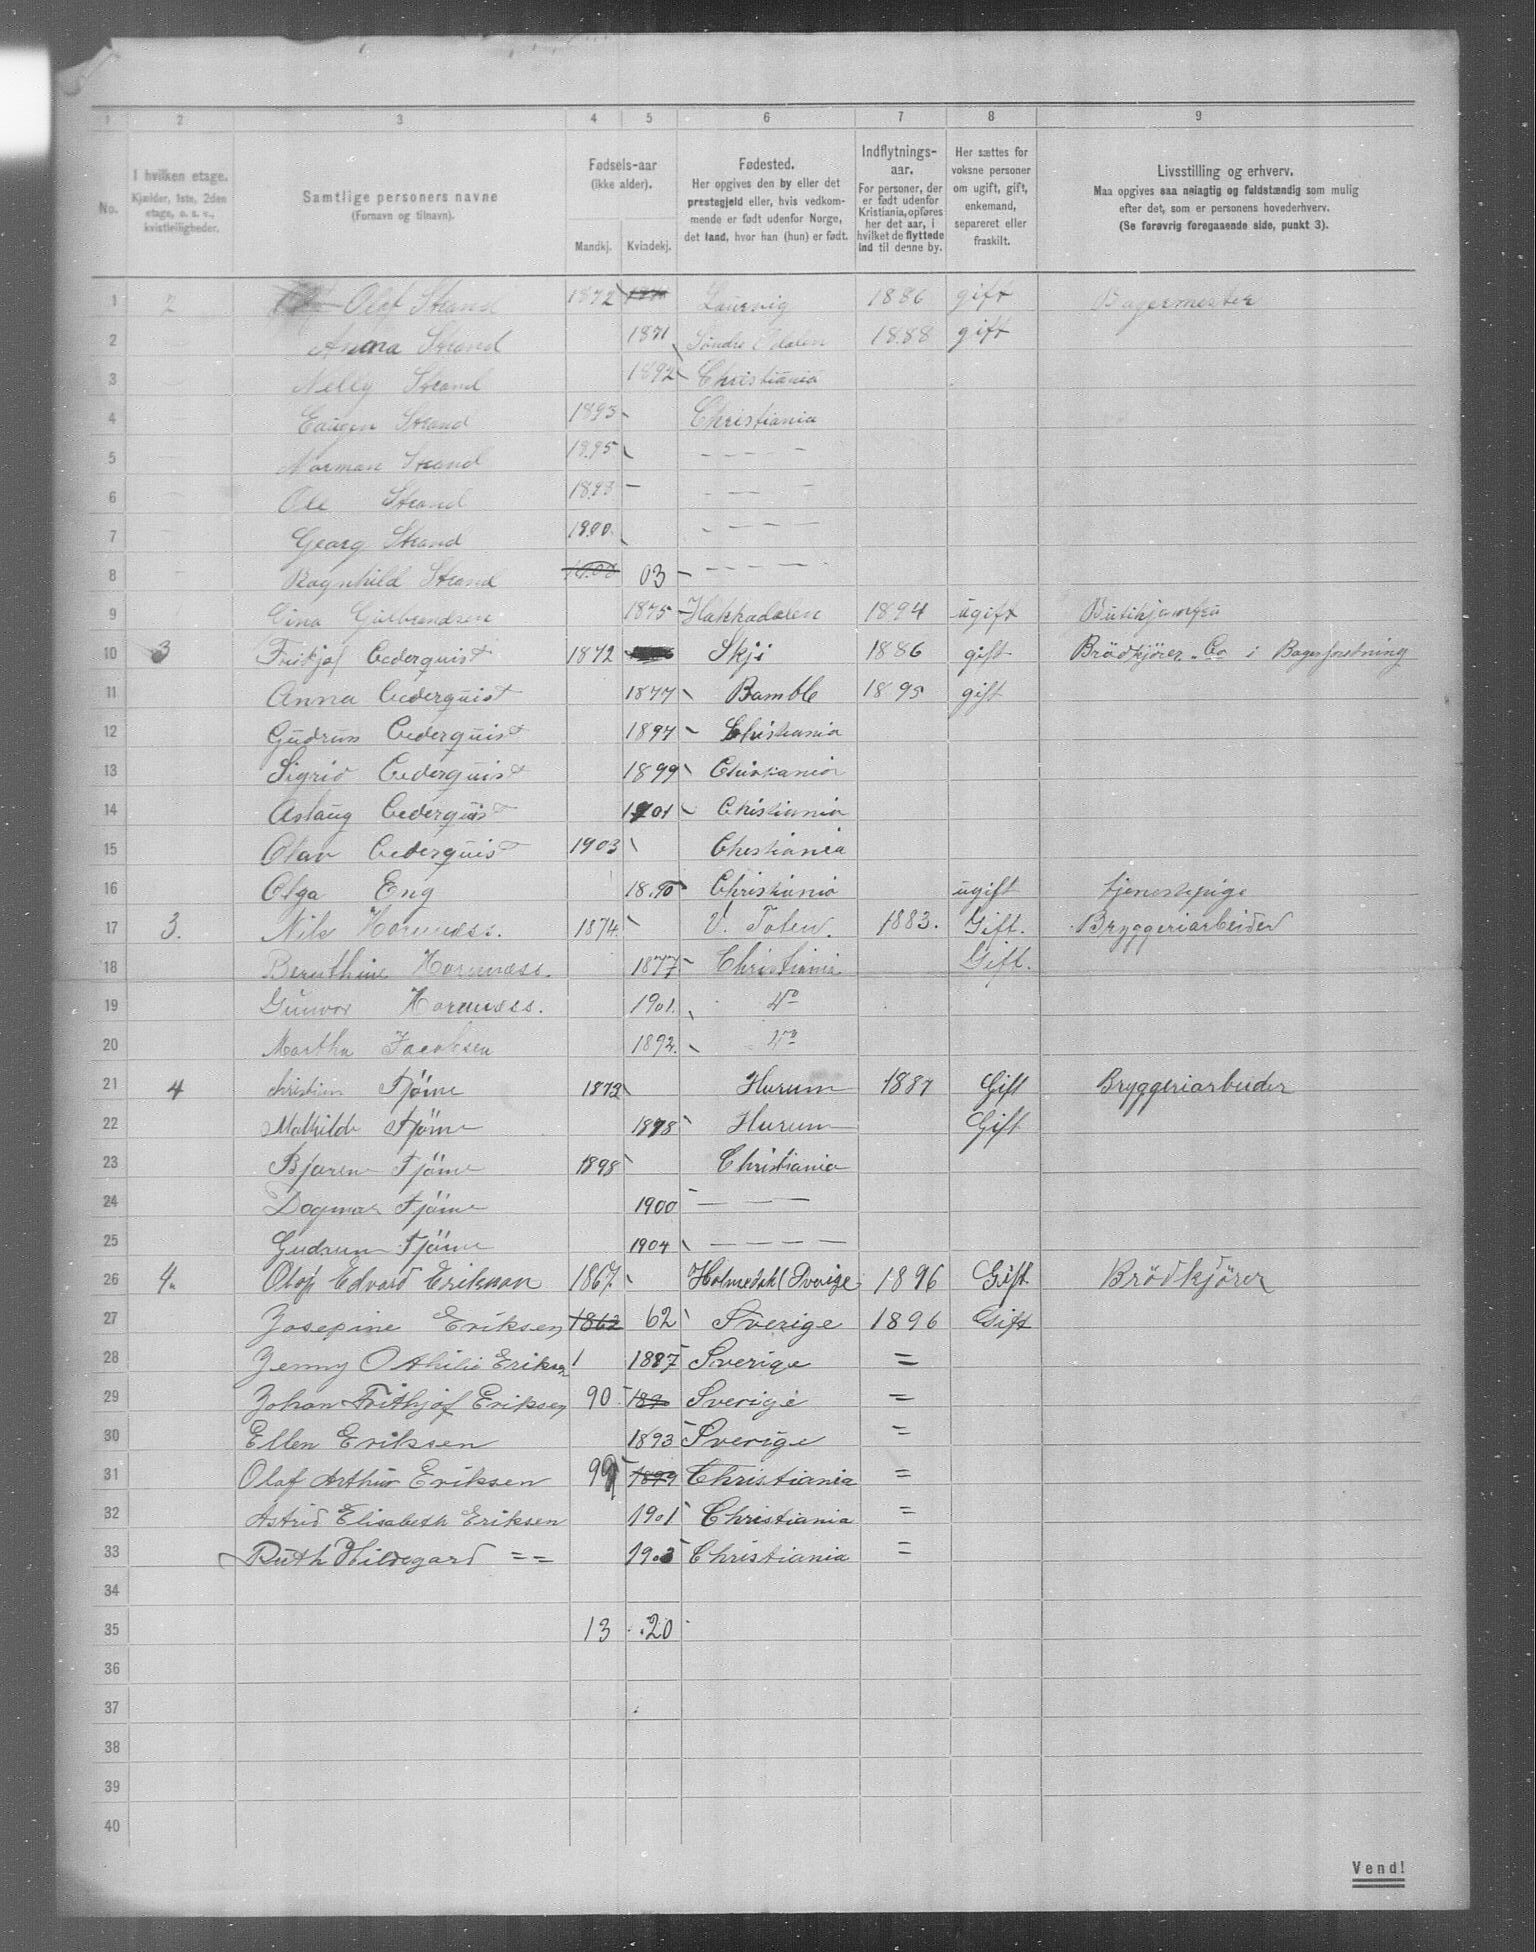 1 2 3 4 5 6 7 8 9
No.
I hvilken etage.
Kjælder, 1ste, 2den
etage, o. s. v.,
kvistleiligheder.
Samtlige personers navne
(Fornavn og tilnavn).
Fødsels-aar
(ikke alder).
Mandkj. Kvindekj.
Fødested.
Her opgives den by eller det
prestegjeld eller, hvis vedkom-
mende er født udenfor Norge,
det land, hvor han (hun) er født.
Indflytnings-
aar.
For personer, der
er født udenfor
Kristiania, opføres
her det aar, i
hvilket de flyttede
ind til denne by.
Her sættes for
voksne personer
om ugift, gift,
enkemand,
separeret eller
fraskilt.
Livsstilling og erhverv.
Maa opgives saa nøiagtig og fuldstændig som mulig
efter det, som er personens hovederhverv.
(Se forøvrig foregaaende side, punkt 3).
1 2 Olaf Strand 1872 Laurvig 1886 gift Bagermester
2 Anna Strand 1871 Søndre Odalen 1888 gift
3 Nelly Strand 1892 Christiania
4 Strand 1893 Christiania
5 Norman Strand 1895 - - - -
6 Ole Strand 1898 - - - -
7 Georg Strand 1900 - - - -
8 Ragnhild Strand 1900 03 - - - -
9 Gina Gulbrandsen 1875 Hakkadalen 1894 ugift Butikjomfru
10 3 Fritjof Cederquist 1872 Skji 1886 gift Brödkjörer Co i Bagerforretning
11 Anna Cederquist 1877 Bamble 1895 gift
12 Gudrun Cederquist 1897 Christiania
13 Sigrid Cederquist 1899 Christiania
14 Aslaug Cederquist 1901 Christiania
15 Olav Cederquist 1903 Christiania
16 Olga Eng 18 Christiania ugift tjenestepige
17 3. Nils Hornæss. 1874. V. Toten. 1883. Gift. Bryggeriarbeider
18 Bernthine Hornæss. 1877 Christiania Gift.
19 Gunvor Hornæss. 1901. do
20 Martha Jacobsen 1892. do
21 4 Christian Tjöme 1872 Hurum 1887 Gift Bryggeriarbeider
22 Mathilde Tjöme 1878 Hurum Gift
23 Bjarne Tjöme 1898 Christiania
24 Dagmar Tjöme 1900 — — —
25 Gudrun Tjöme 1904 — — — —
26 4. Olof Edvard Erikson 1867. Holmedal (Sverige 1896 Gift Brödkjörer
27 Josepine Eriksen 1862 62 Sverige 1896 Gift
28 Jenny Othilie Eriksen 1 1887 Sverige =
29 Johan Frithjof Eriksen 90 189 Sverige =
30 Ellen Eriksen 1893 Sverige =
31 Olaf Arthur Eriksen 99 1899 Christiania =
32 Astrid Elisabeth Eriksen 1901 Christiania =
33 Ruth Hildegard == 1903 Christiania =
34
35 13 20
36
37
38
39
40
Vend!